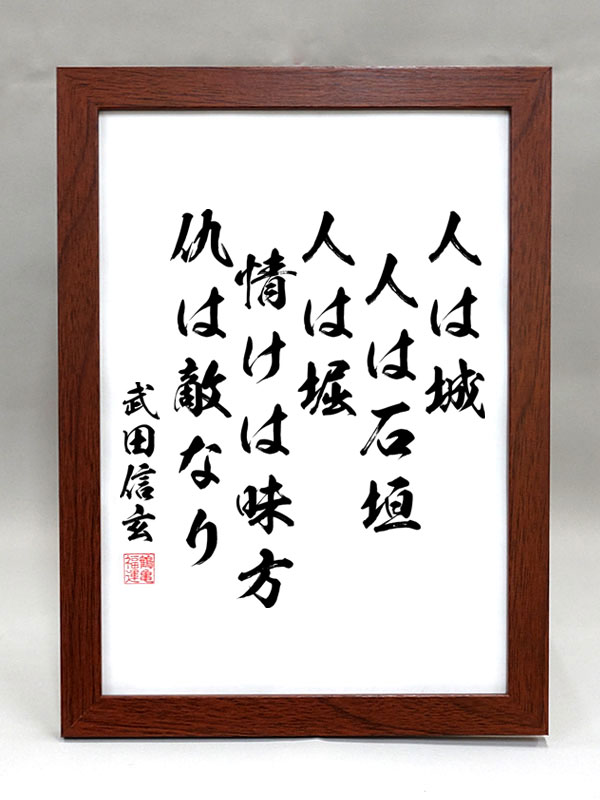 人は城
人は石垣
人は堀
情けは味方
仇は敵なり
武田信玄
鶴亀
福運